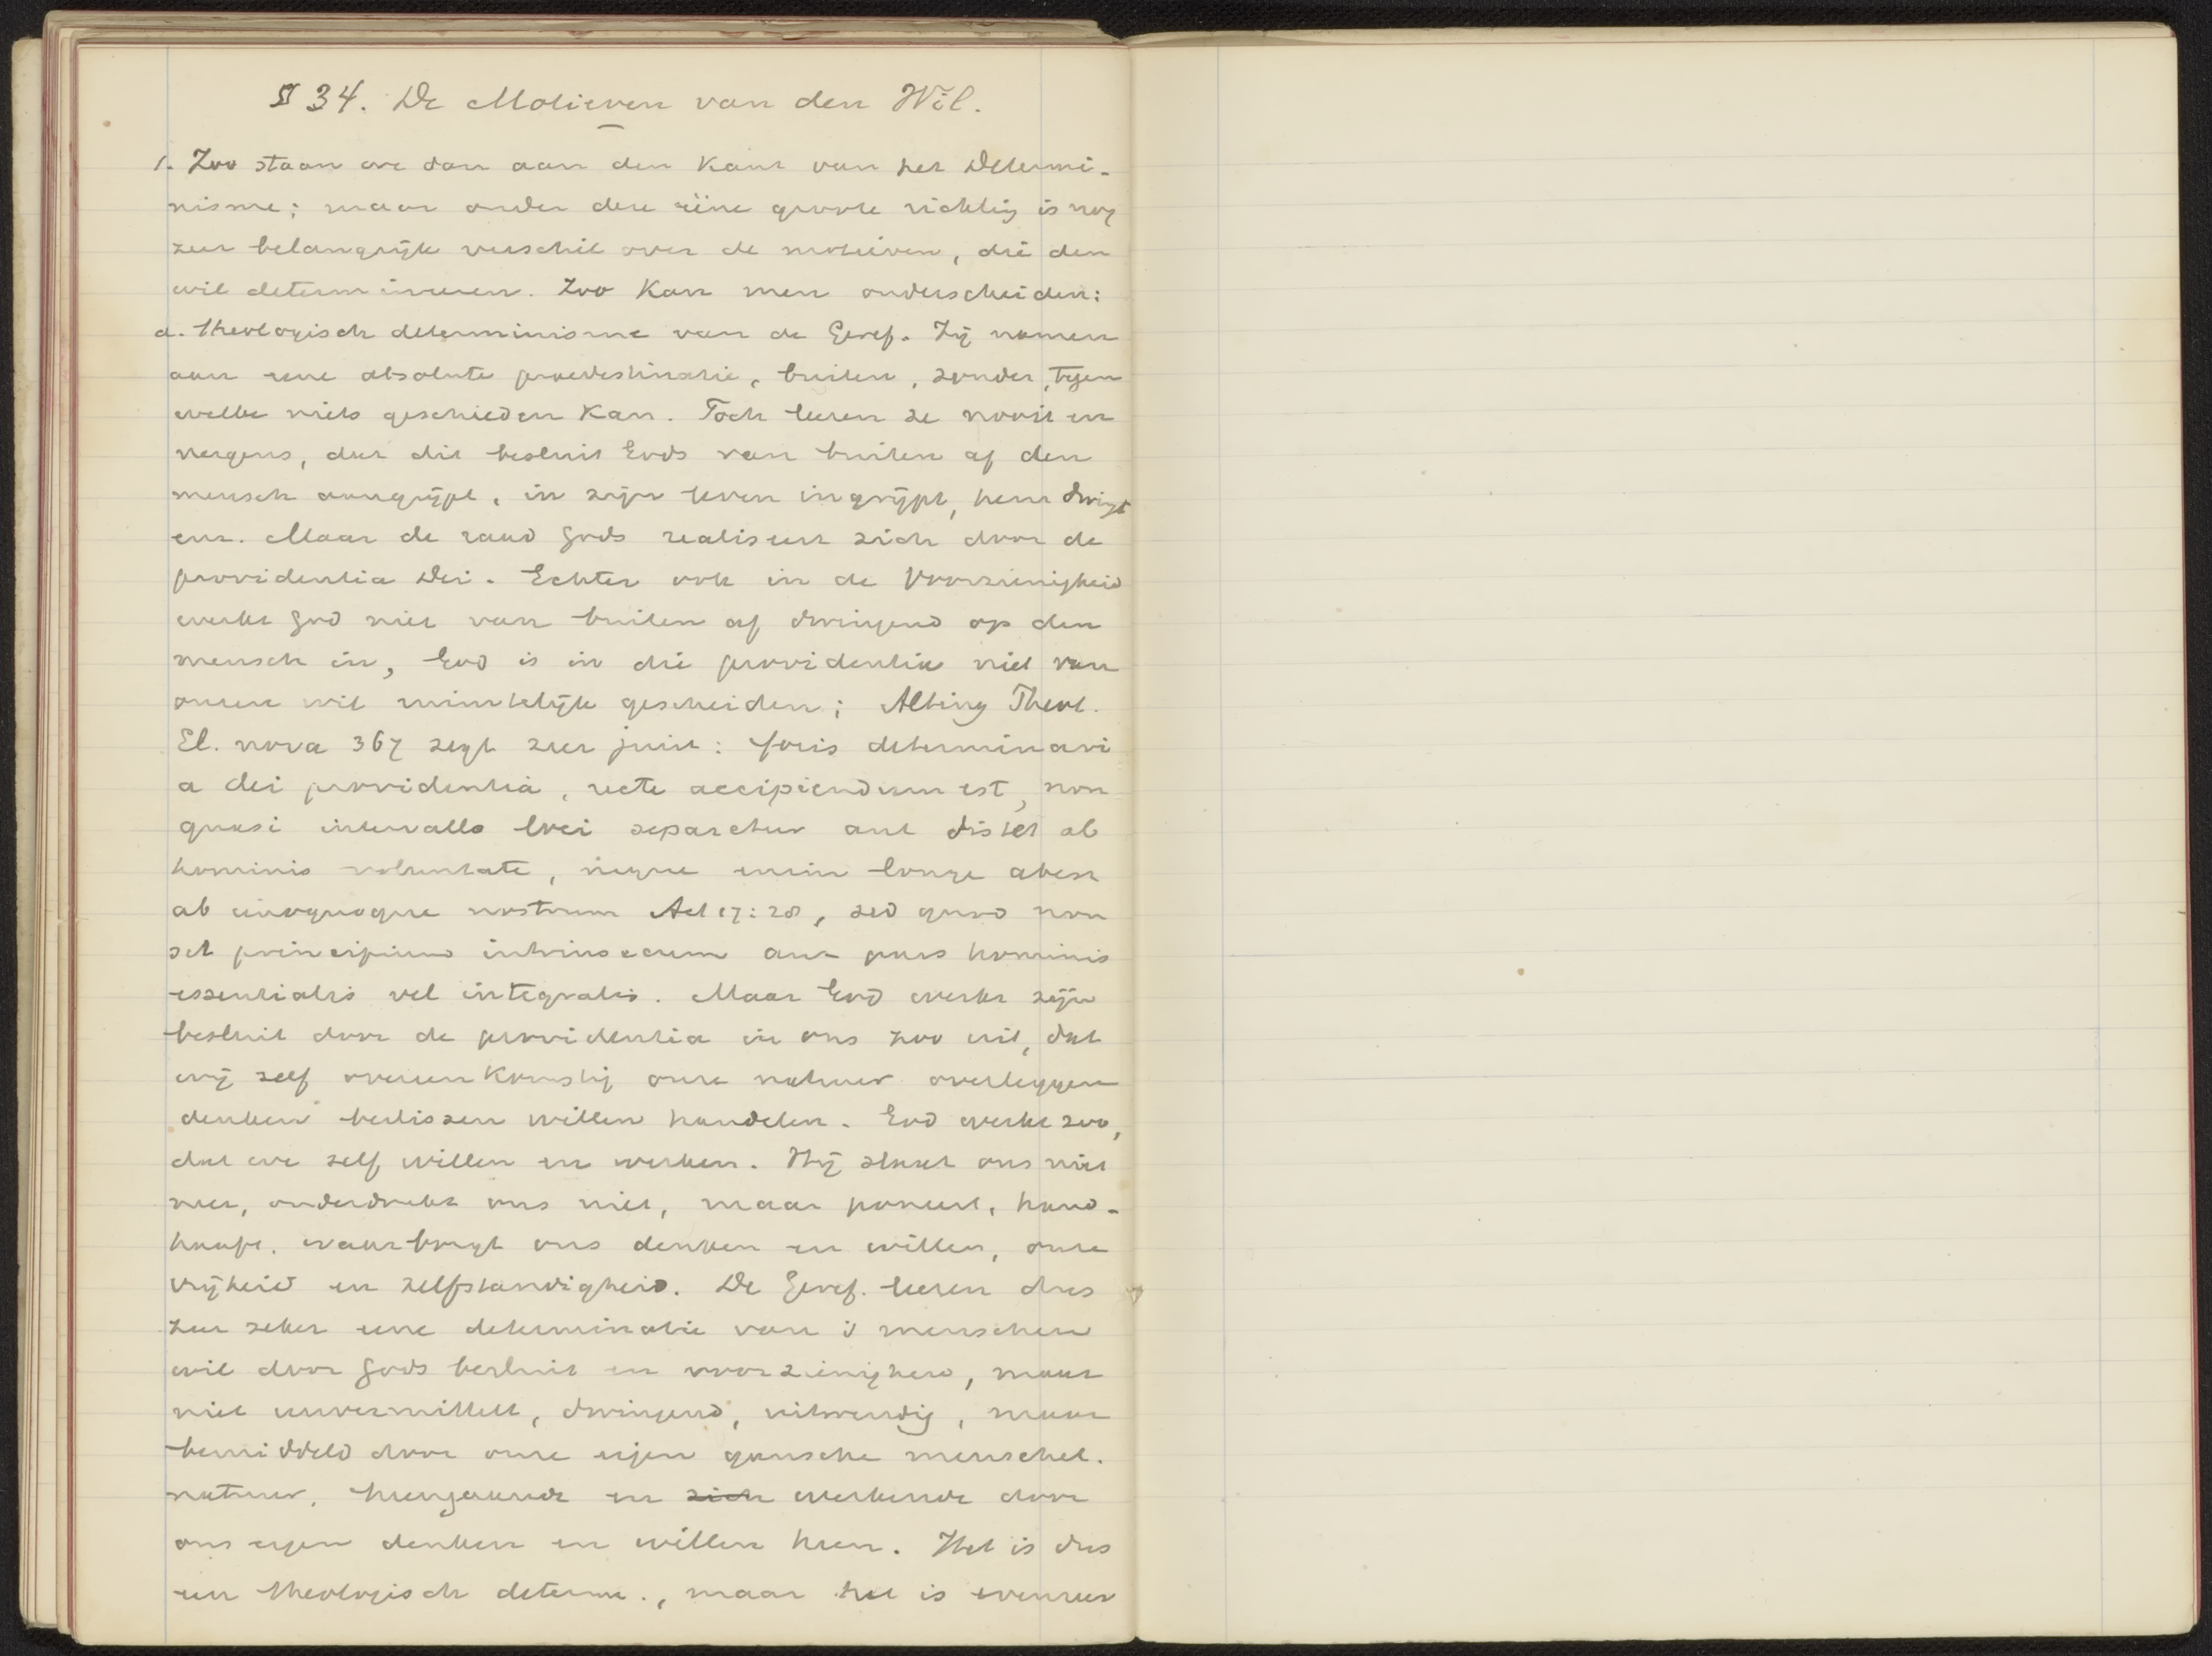 § 34. De Motieven van den Wil.
1. Zoo staan we dan aan den Kant van het Determi-
nisme; maar onder deze ééne groote richting is nog
zeer belangrijk verschil over de motieven, die den
wil determineeren. Zoo Kan men onderscheiden:
a. theologisch determinisme van de Geref. Zij namen
aan eene absolute praedestinatie, buiten, zonder, tegen
welke niets geschieden Kan. Toch leeren ze nooit en
nergens, dat dit besluit Gods van buiten af den
mensch aangrijpt, in zijn leven ingrijpt, hem dwingt
enz. Maar de raad Gods realiseert zich door de
providentia Dei. Echter ook in de Voorzienigheid
werkt God niet van buiten af dwingend op den
mensch in, God is in die providentia niet van
onzen wil ruimtelijk gescheiden; Alting Theol.
El. nova 367 zegt zeer juist: foris determinari
a dei providentia, recte accipiendum est, non
quasi intervallo loci separetur aut distet ab
hominis voluntate, neque enim longe abest
ab unoquoque nostrum Act 17:28, sed quod non
sit principium intrinsecum aut pars hominis
essentialis vel integralis. Maar God werkt zijn
besluit door de providentia in ons zoo uit, dat
wij zelf overeenkomstig onze natuur overleggen
denken beslissen willen handelen. God werkt zoo,
dat we zelf willen en werken. Hij slaat ons niet
neer, onderdrukt ons niet, maar poneert, hand-
haaft, waarborgt ons denken en willen, onze
vrijheid en zelfstandigheid. De Geref. leeren dus
zeer zeker eene determinatie van 's menschen
wil door Gods besluit en voorzienigheid, maar
niet unvermittelt, dwingend, uitwendig, maar
bemiddeld door onze eigen gansche menschel.
natuur, heengaande en zich werkende door
ons eigen denken en willen heen. Het is dus
een theologisch determ., maar het is evenzeer